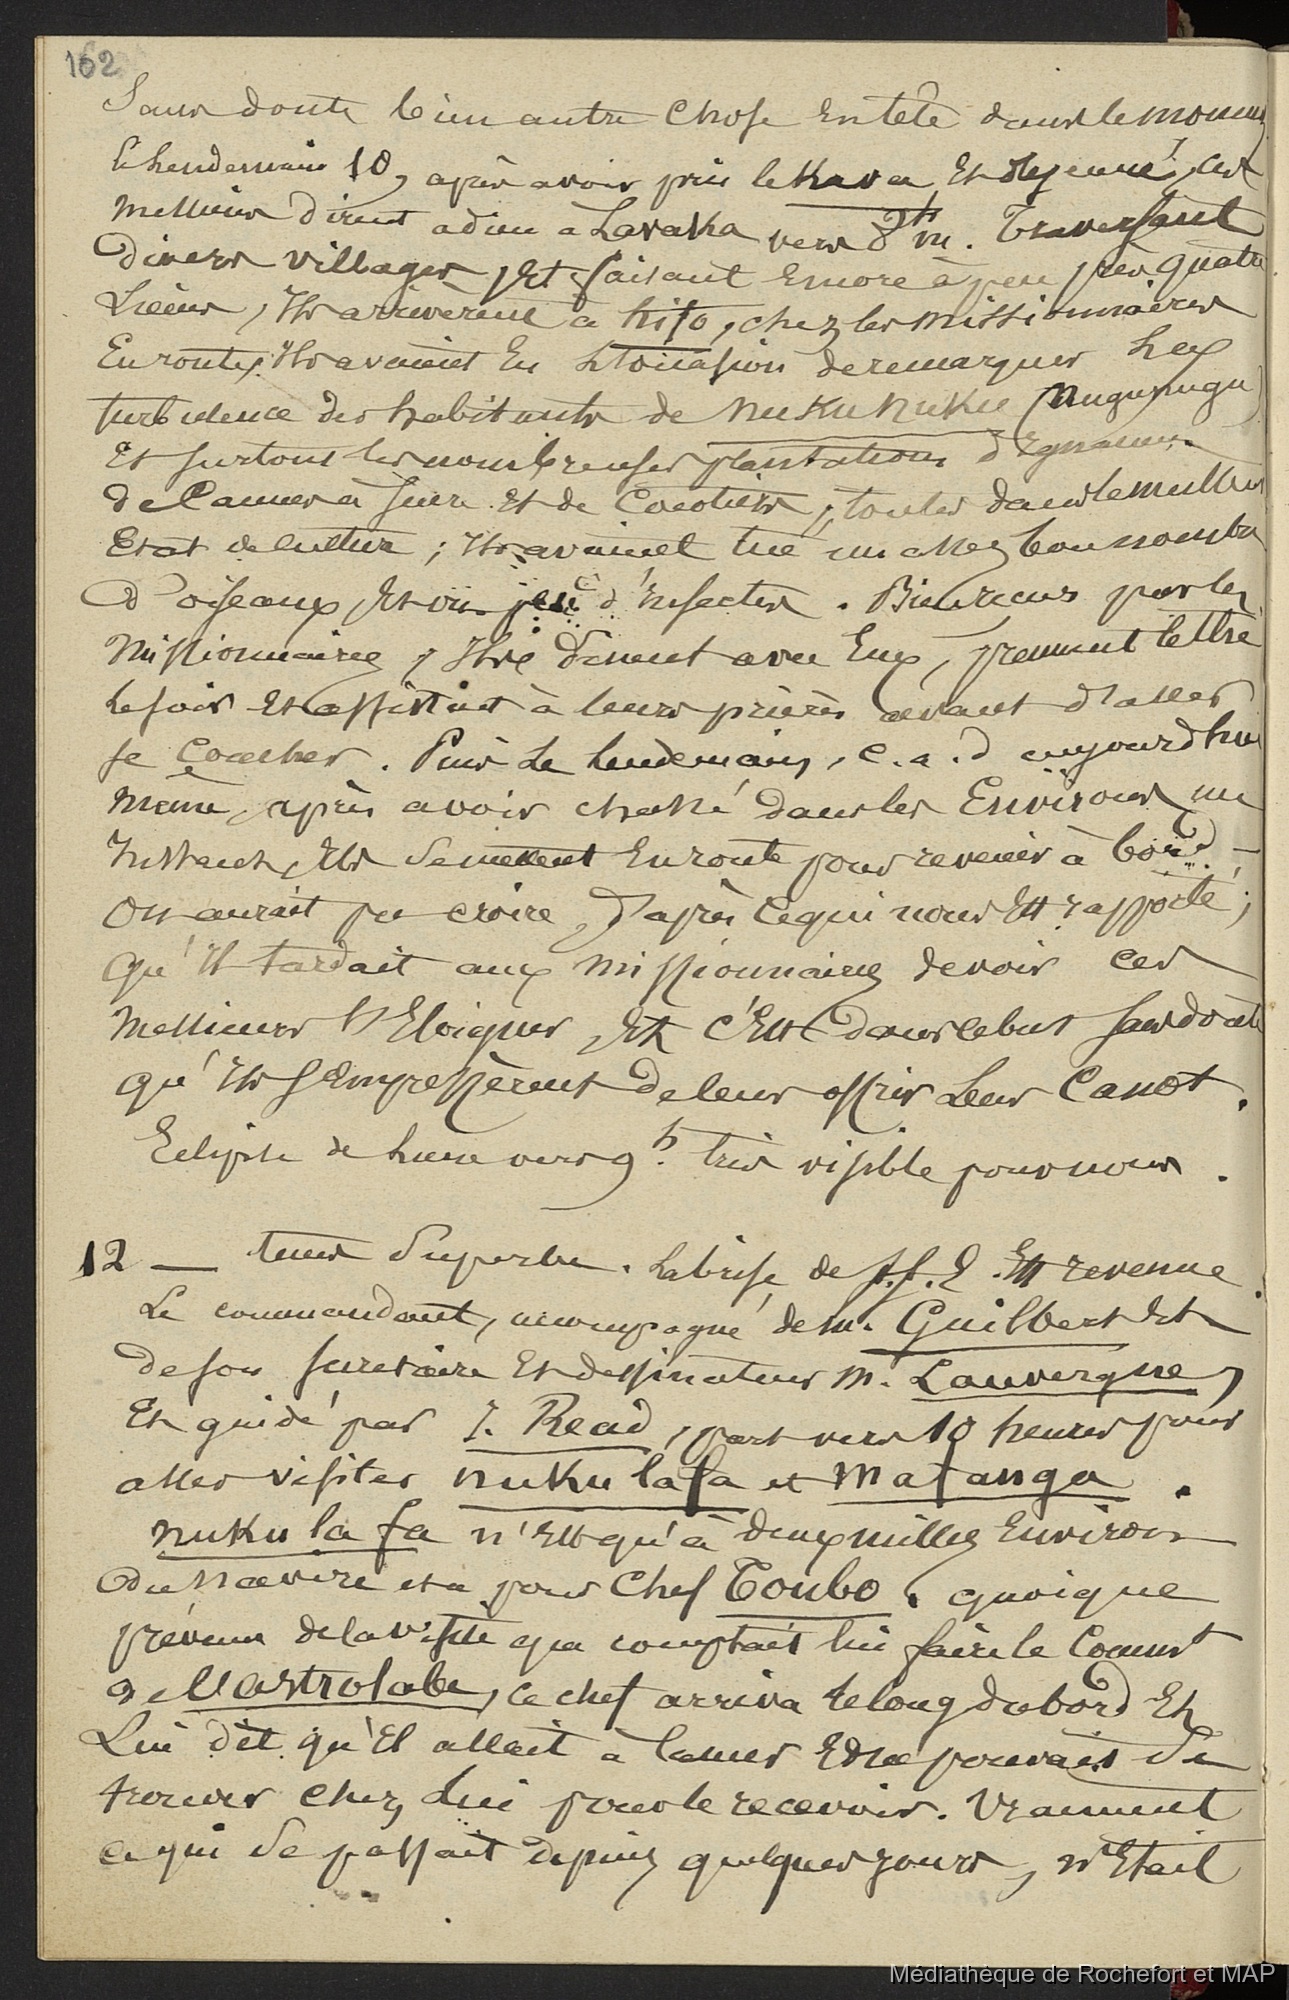 162
Sans doute bien autre chose En tête dans le moment
le Lendemain 10, après avoir pris le Kava Et déjeuné, ces
Messieurs dirent adieu a Lavaka vers 8h m. Traversant
Divers villages, Et faisant Encore à peu près quatre
Lieues, Ils arrivèrent à hifo, chez les Missionnaires
En route, Ils avaient Eu L'occasion de remarquer La
turbulence des habitants de nuku nuku (nugunugu)
Et surtout les nombreuses plantations d'Ignames
de Cannes à Sucre Et de Cocotiers, toutes dans le meilleur
Etat de culture ; Ils avaient tué un assez bon nombre
D'oiseaux, Et vu peu d'Insectes . Bien reçus par les
Missionnaires, Ils dinent avec Eux, prennent le thé
Le soir Et assistent à leurs prières avant d'aller
se Coucher . Puis Le lendemain, c.a.d aujourd'hui
Même, après avoir chassé dans les Environs un
Instant, Ils Se mettent En route pour revenir à bord. —
On aurait pu croire, d'après ce qui nous Est rapporté ;
Qu'Il tardait aux Missionnaires de voir ces
Messieurs S'Eloigner, Et C'Est dans ce but sans doute
qu'Ils S'Empressèrent de leur offrir Leur Canot .
Eclipse de Lune vers 9h. très visible pour nous .
12 — tems Superbe . La brise de S.S.E. Est revenue .
Le commandant, accompagné de m. Guilbert Et
de son Secretaire Et dessinateur M. Lauvergne,
Et guidé par J. Read, part vers 10 heures pour
aller visiter nuku lafa et Mafanga .
nuku la fa n'Est qu'à deux milles Environ
Du Navire et a pour Chef Toubo . quoique
prévenu de la visite que comptait lui faire le Commt
de L'astrolabe, ce chef arriva le long du bord Et
Lui dit qu'Il allait à la mer Et ne pouvait Se
trouver chez Lui pour le recevoir. Vraiment
ce qui Se passait depuis quelques jours, n'Etait
Médiathèque de Rochefort et MAP